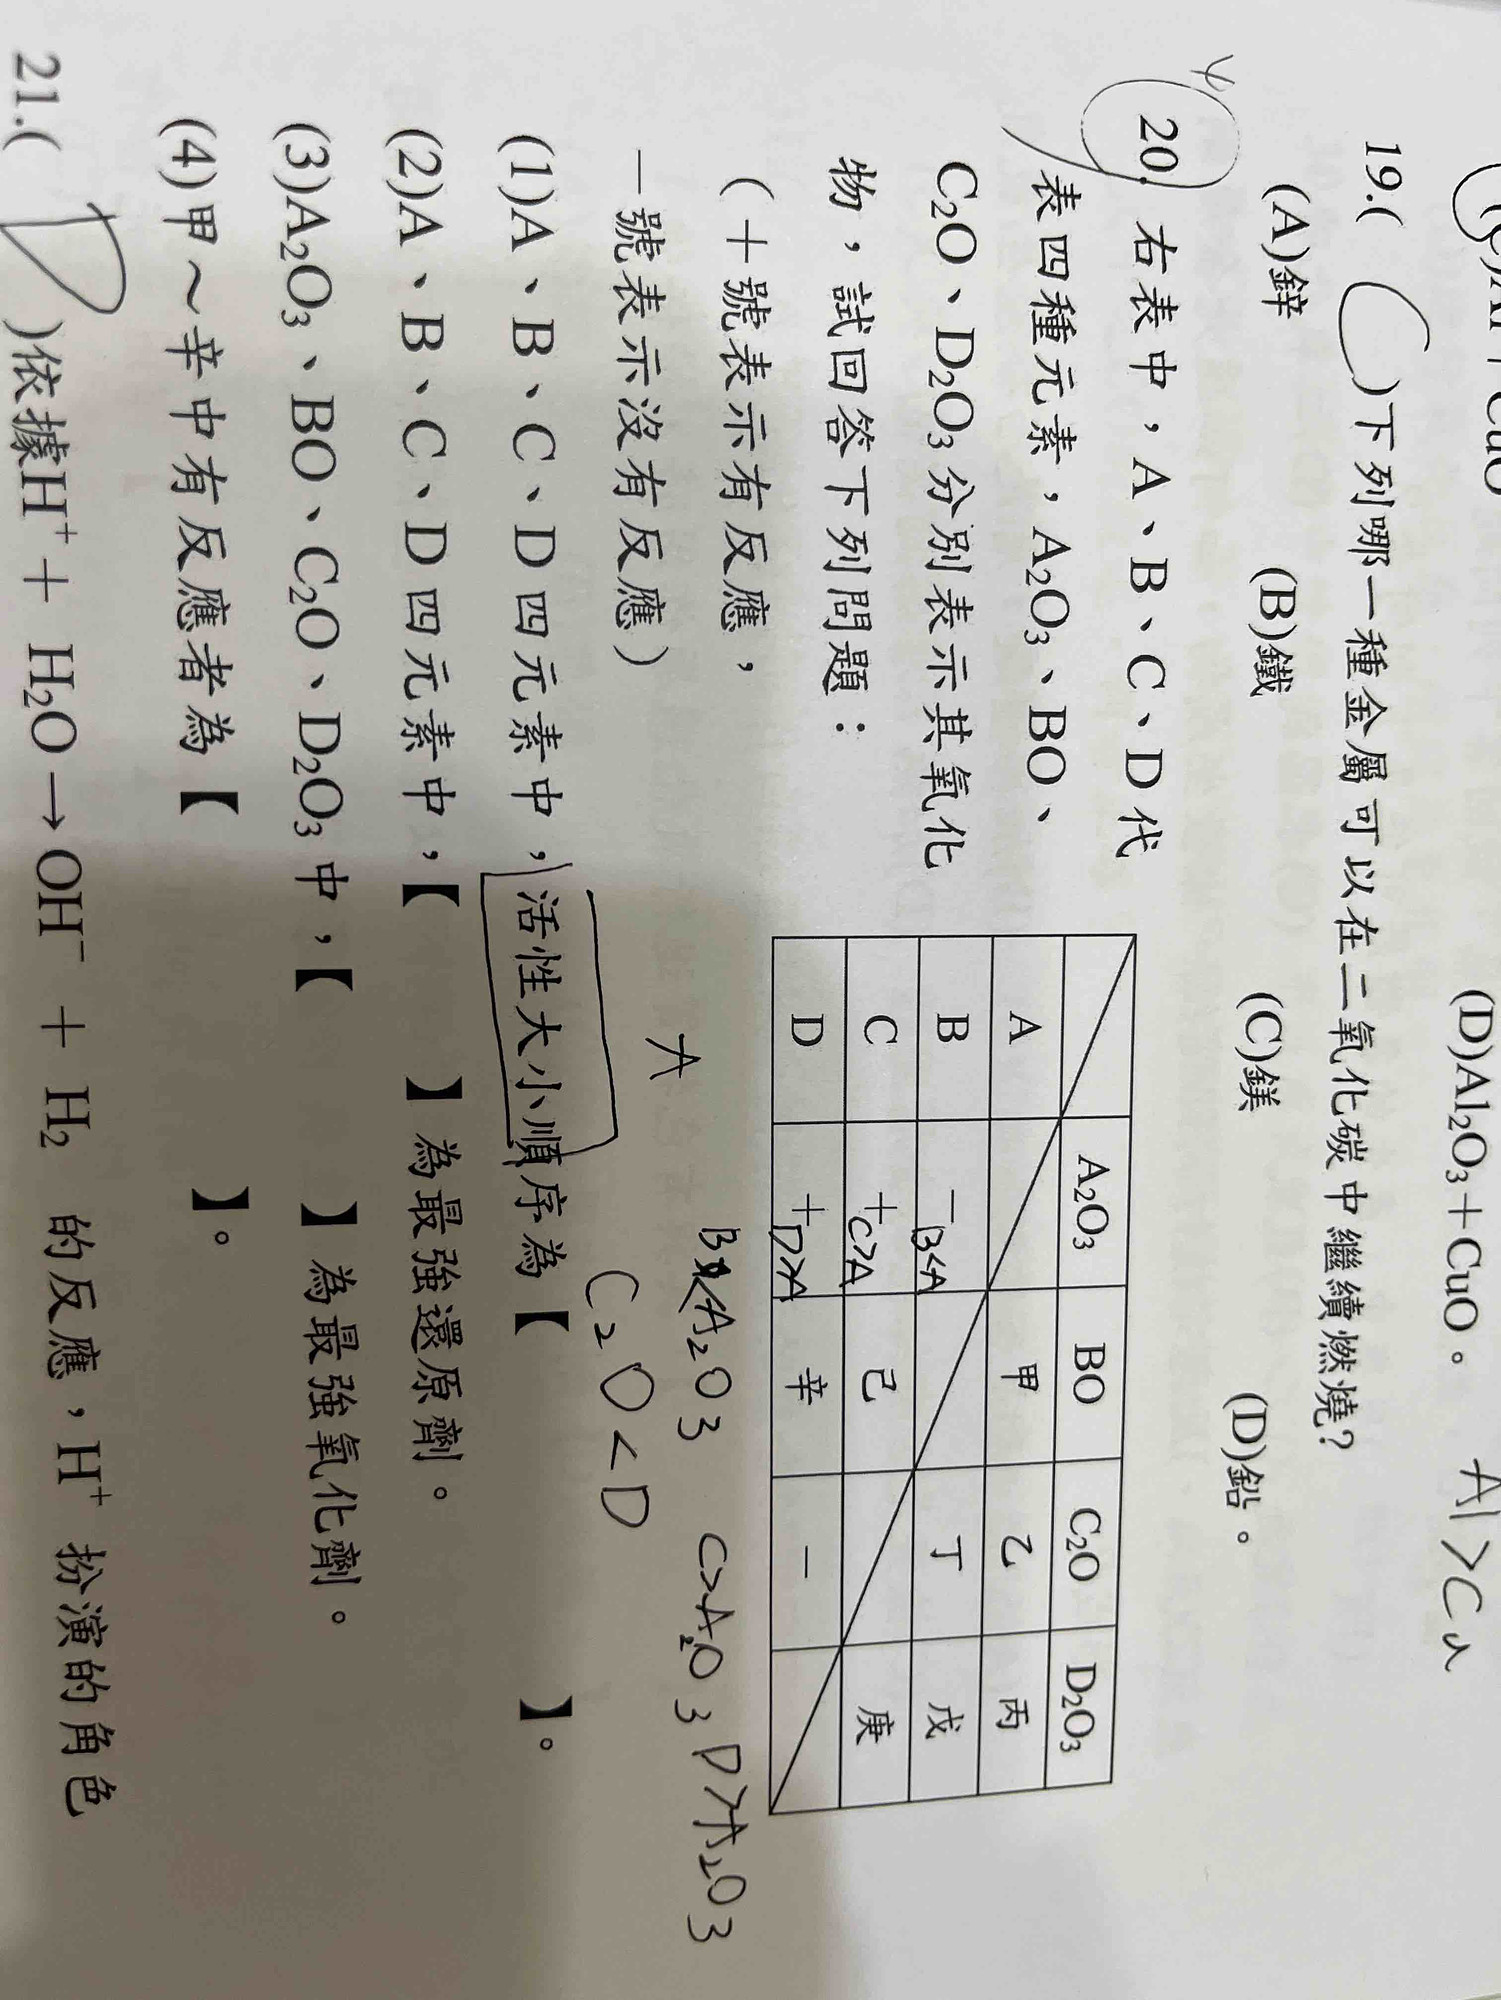 (D)Al₂O₃＋CuO。 Al>Cu
19.( C )下列哪一種金屬可以在二氧化碳中繼續燃燒？
(A)鋅 (B)鐵 (C)鎂 (D)鉛。
20. 右表中，A、B、C、D代
表四種元素，A₂O₃、BO、
C₂O、D₂O₃分別表示其氧化
物，試回答下列問題：
（＋號表示有反應，
－號表示沒有反應）
A₂O₃ BO C₂O D₂O₃
A 甲 乙 丙
B － B<A 丁 戊
C ＋ C>A 己 庚
D ＋ D>A 辛 －
A B<A₂O3 C>A₂O3 D>A₂O3
C₂O<D
(1)A、B、C、D四元素中，活性大小順序為【 】。
(2)A、B、C、D四元素中，【 】為最強還原劑。
(3)A₂O₃、BO、C₂O、D₂O₃中，【 】為最強氧化劑。
(4)甲～辛中有反應者為【 】。
21.( D )依據H⁺＋ H₂O→OH⁻ ＋ H₂ 的反應，H⁺ 扮演的角色